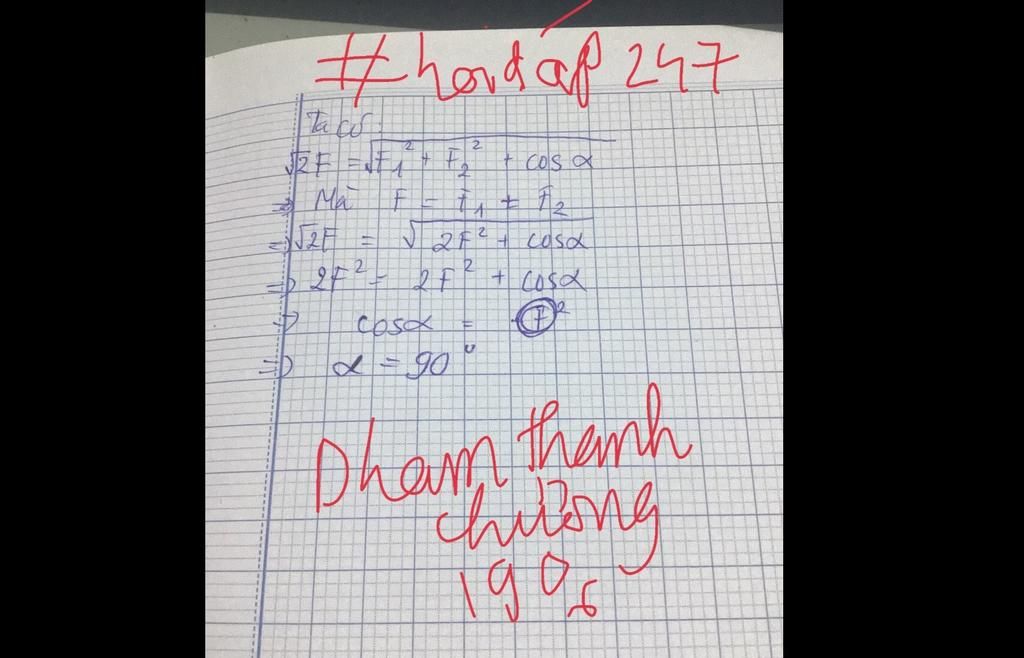 #hoidáp 247
Ta có:
√2F = √F₁² + F₂² + cos α
⇒ Mà F = F₁ = F₂
⇒ √2F = √2F² + cosα
⇒ 2F² = 2F² + cosα
⇒ cosα =
⇒ α = 90°
Pham thanh
chương
1906